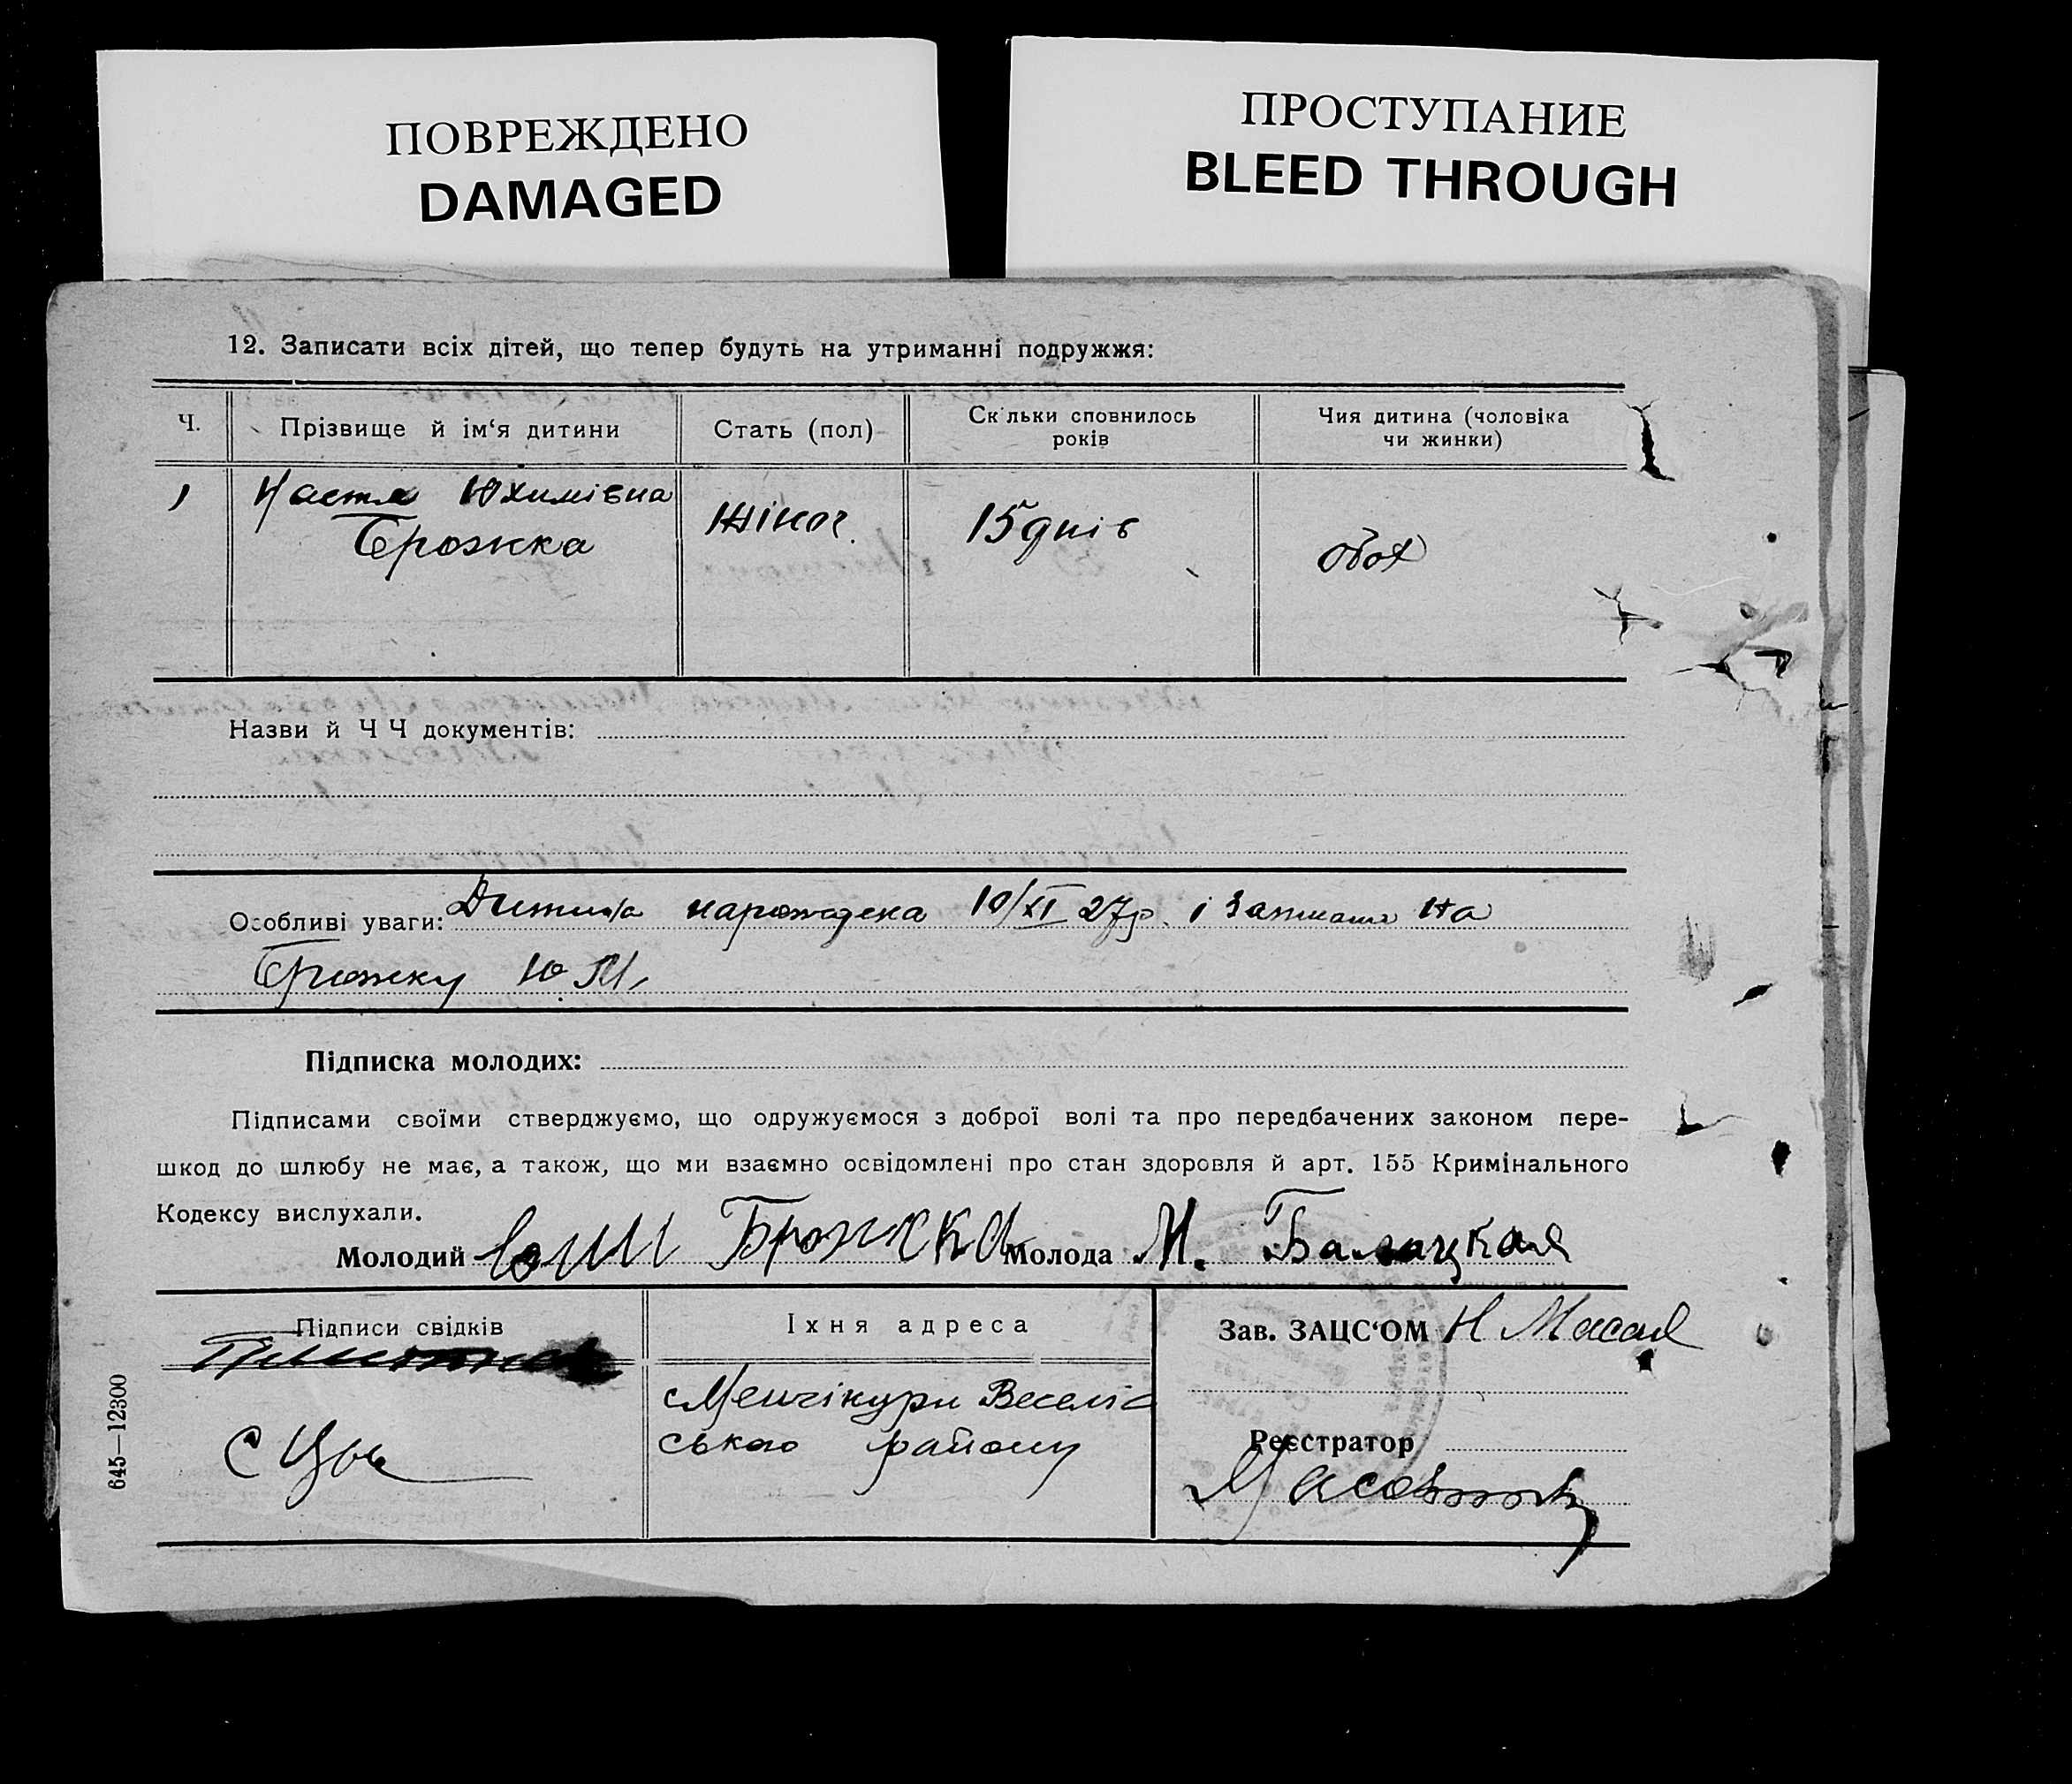 ПОВРЕЖДЕНО
DAMAGED
ПРОСТУПАНИЕ
BLEED THROUGH
12. Записати всіх дітей, що тепер будуть на утриманні подружжя:
Ч.
Прізвище й ім‘я дитини
Стать (пол)
Скільки сповнилось
років
Чия дитина (чоловіка
чи жинки)
1
Настя Юхимівна
Брожка
жіноч.
15 днів
обох
Назви й Ч Ч документів:
Особливі уваги: Дитина нарождена 10/XI 27р. і записана на
Брожку Ю. М.
Підписка молодих:
Підписами своїми стверджуємо, що одружуємося з доброї волі та про передбачених законом пере-
шкод до шлюбу не має, а також, що ми взаємно освідомлені про стан здоровля й арт. 155 Кримінального
Кодексу вислухали.
Молодий Брожка Молода М. Балацкая
Підписи свідків
Їхня адреса
Зав. ЗАЦС‘ОМ Н
Менчікури Веселів
ського району
Реєстратор
645—12300